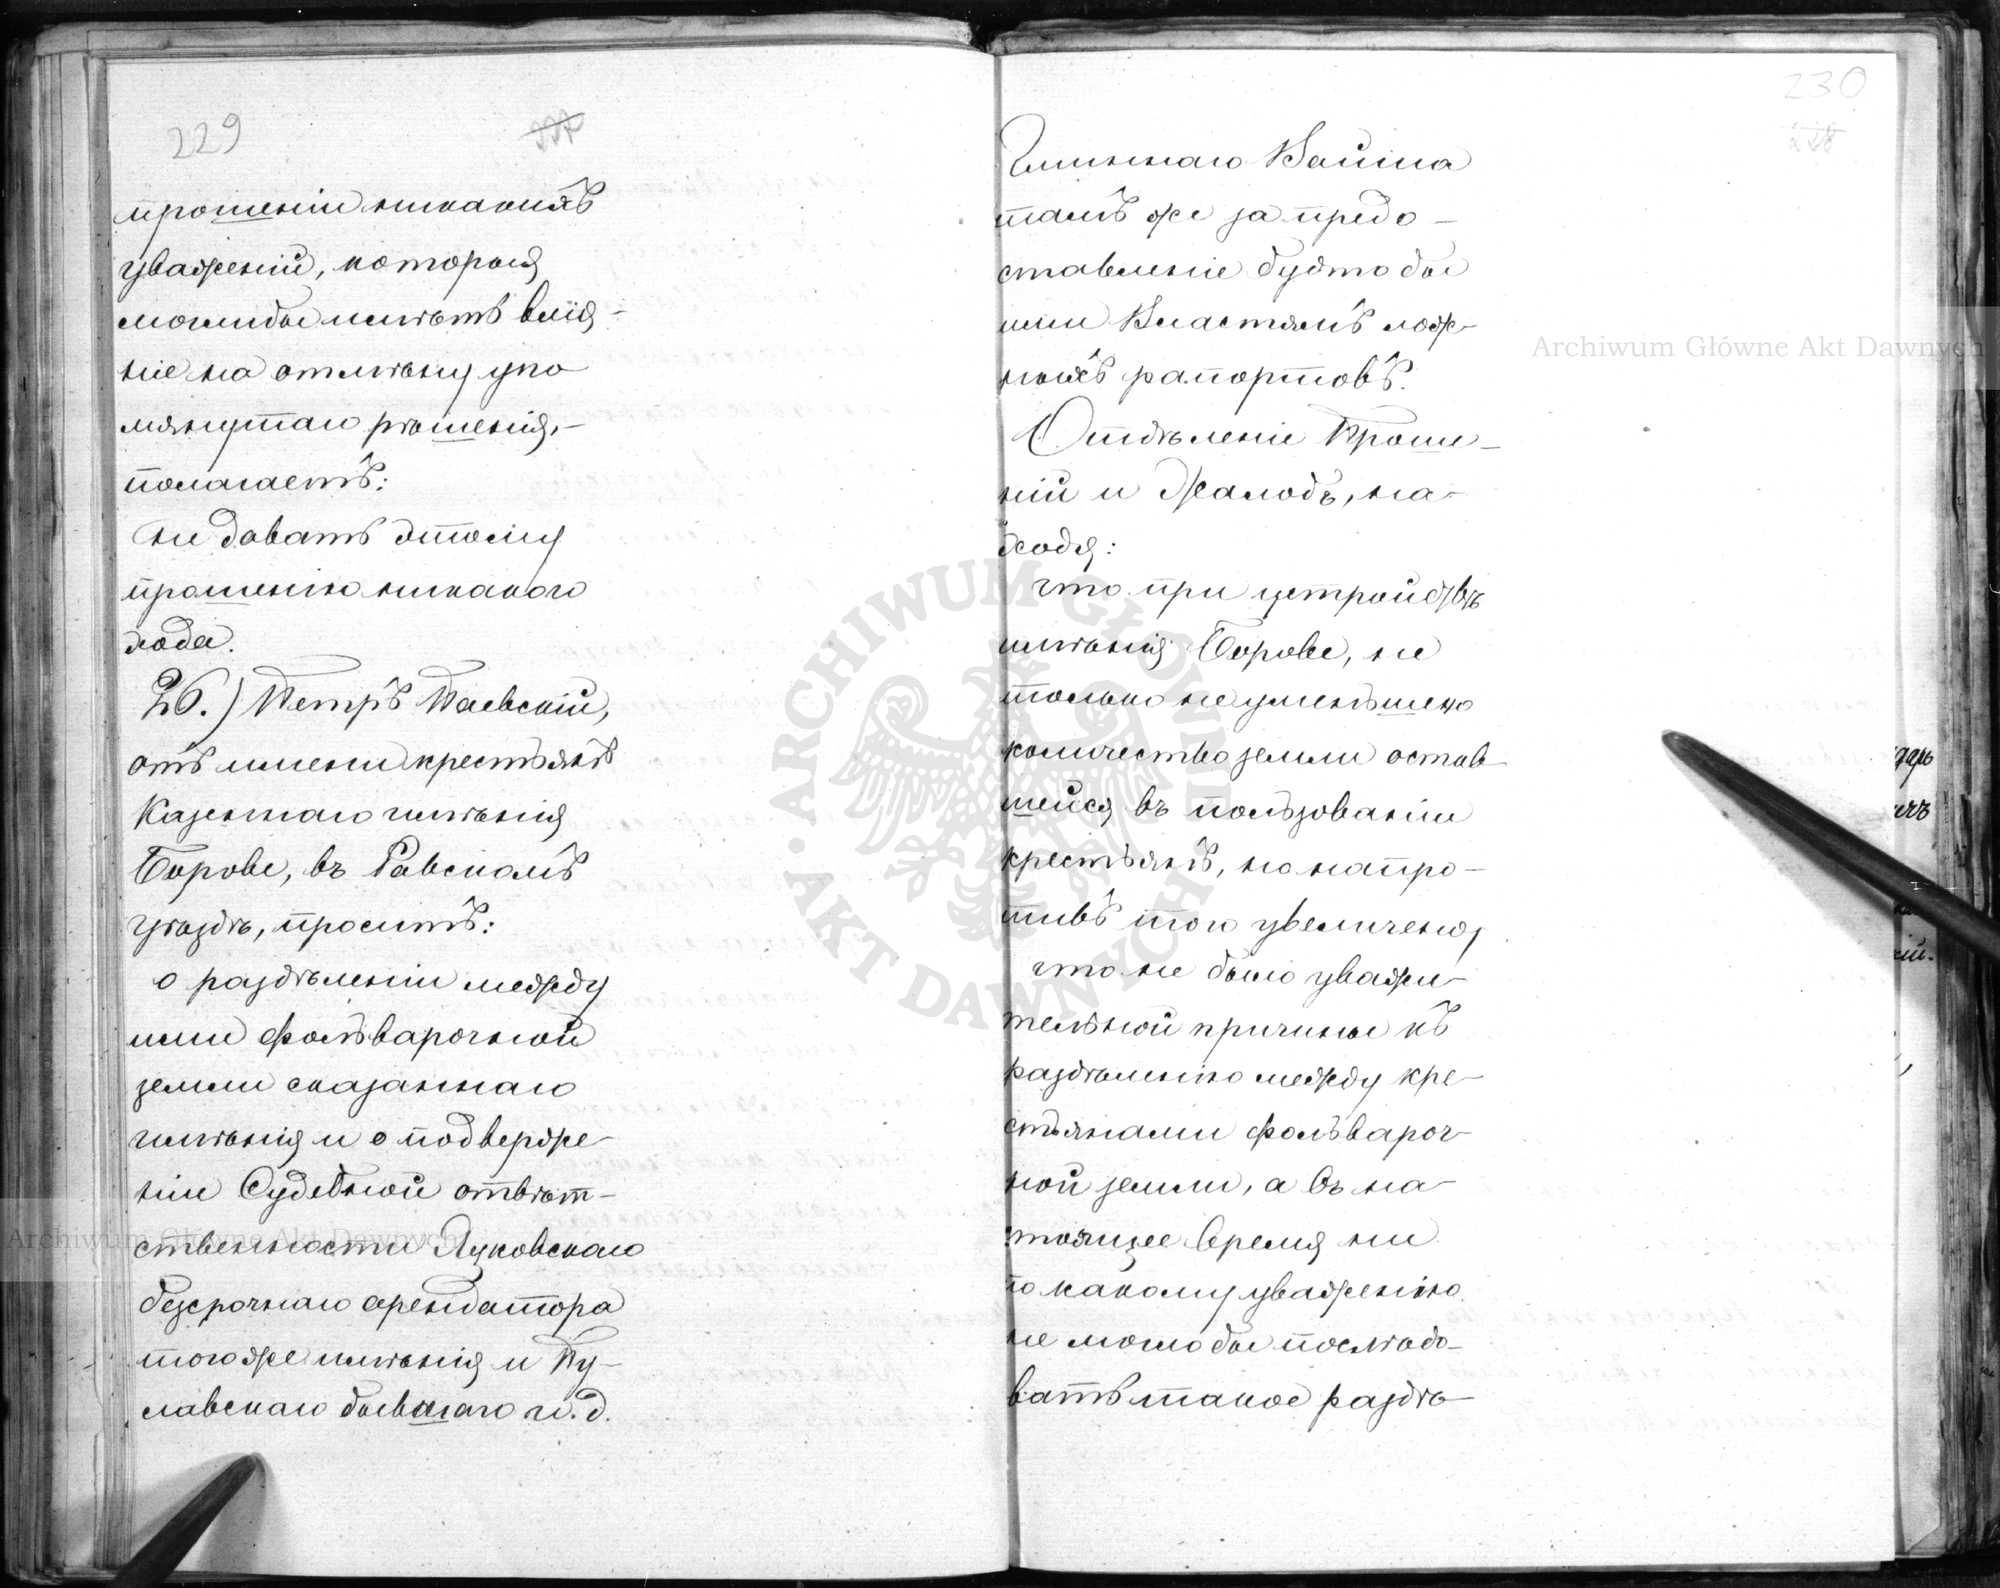 229
прошеніи никакихъ
уваженій, которыя
моглибы имѣть вліи-
ніе на отмѣну упо
мянутаго рѣшенія,-
полагаетъ:
не давать этому
прошенію никакого
хода.
26.) Петръ Паевскій,
отъ имени крестьянъ
Казеннаго имѣнія
Борове, въ Равскомъ
уѣздѣ, проситъ:
о раздѣленіи между
ими фольварочной
земли сказаннаго
имѣнія и о подверже-
ніи Судебной отвѣт-
ственности Луковскаго
безсрочнаго арендатора
тогоже имѣнія и Пу-
лавскаго бывшаго и. д.
230
228
Гминнаго Войта
тамъ же за предо-
ставленіе будто бы
ими Властямъ лож-
ныхъ рапортовъ.
Отдѣленіе Проше-
ній и Жалобъ, на-
ходя:
что при устройствѣ
имѣнія Борове, не
только не уменьшено
количество земли остав
шейся въ пользованіи
крестьянъ, но напро-
тивъ того увеличено,
что не было уважи-
тельной причины къ
раздѣленію между кре-
стьянами фольвароч-
ной земли, а въ на-
стоящее время ни
по какому уваженію
не моглобы послѣдо-
вать такое раздѣ-
Archiwum Główne Akt Dawnych
Archiwum Główne Akt Dawnych
ARCHIWUM GŁÓWNE AKT DAWNYCH